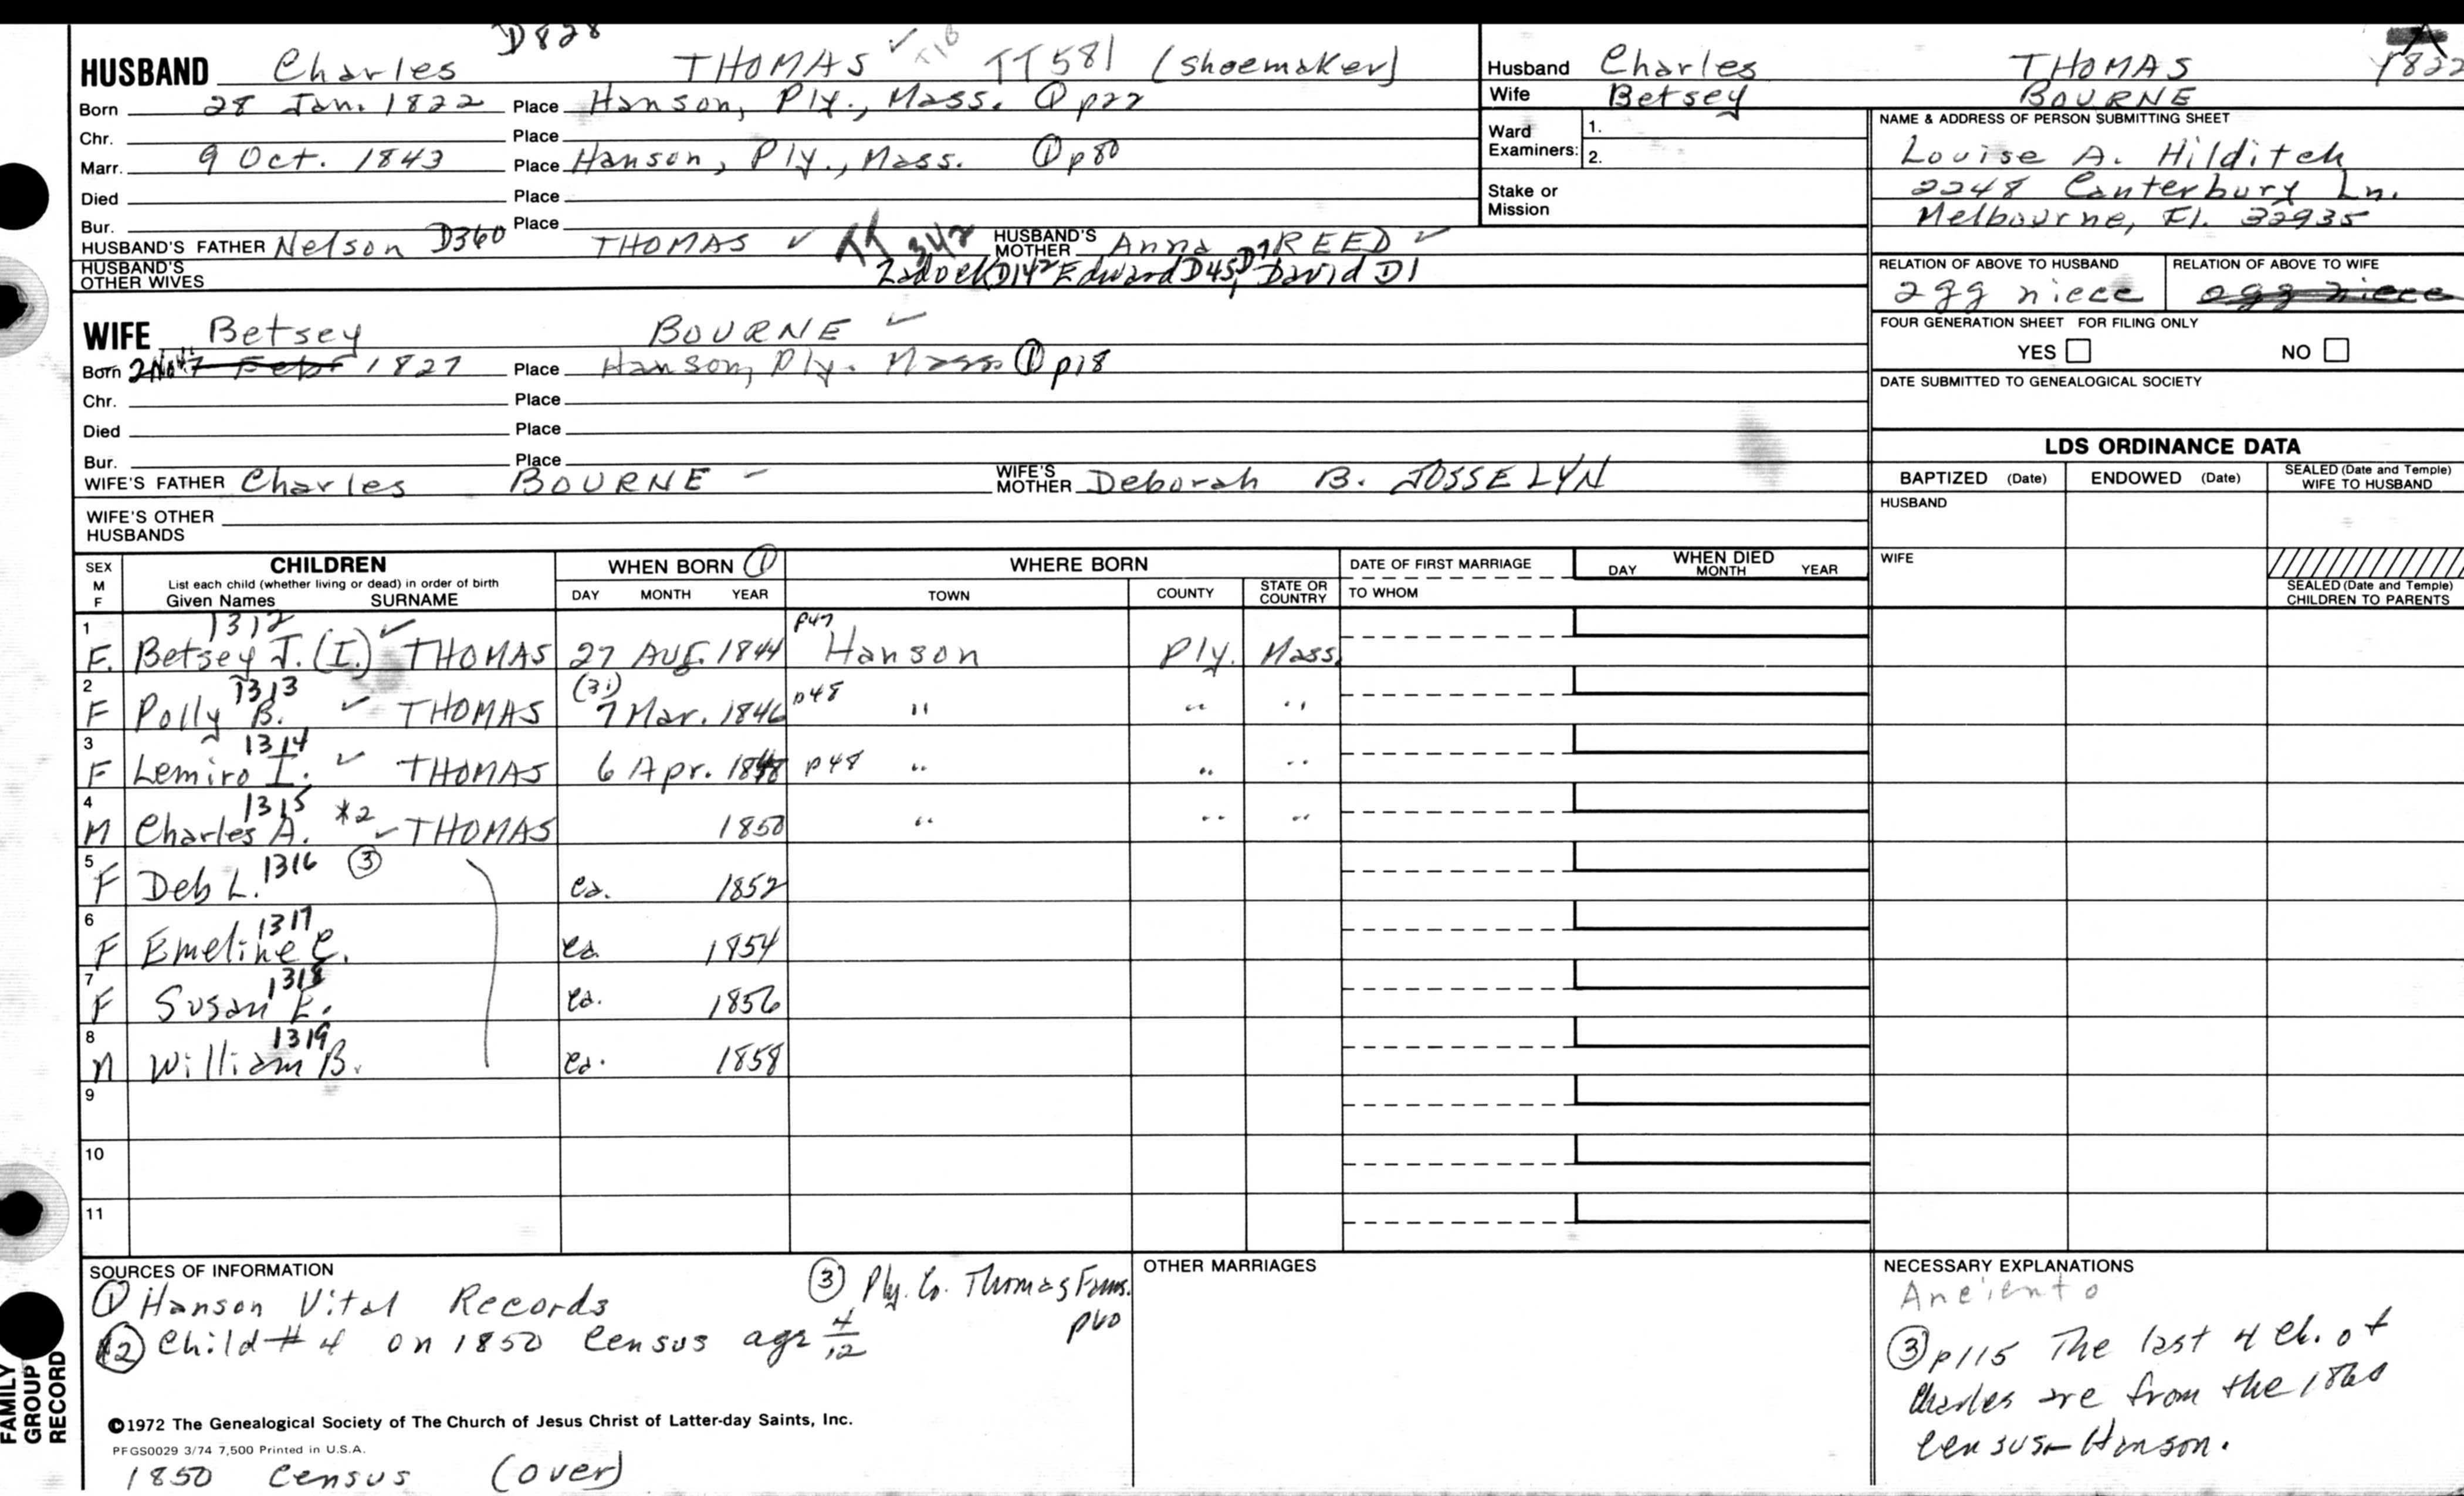 D828
HUSBAND Charles THOMAS ✓ TT581 (shoemaker)
Born 28 Jan. 1822 Place Hanson, Ply., Mass. ① p22
Chr. Place
Marr. 9 Oct. 1843 Place Hanson, Ply., Mass. ① p80
Died Place
Bur. Place
HUSBAND'S FATHER Nelson D360 THOMAS ✓ TT 342 HUSBAND'S MOTHER Anna REED ✓
HUSBAND'S OTHER WIVES Zadock D142 Edward D45, David D1
WIFE Betsey BOURNE ✓
Born 1827 Place Hanson, Ply. Mass ① p18
Chr. Place
Died Place
Bur. Place
WIFE'S FATHER Charles BOURNE WIFE'S MOTHER Deborah B. JOSSELYN
WIFE'S OTHER HUSBANDS
Husband Charles THOMAS 1822
Wife Betsey BOURNE
Ward Examiners: 1.
2.
Stake or Mission
NAME & ADDRESS OF PERSON SUBMITTING SHEET
Louise A. Hilditch
2248 Canterbury Ln.
Melbourne, Fl. 32935
RELATION OF ABOVE TO HUSBAND RELATION OF ABOVE TO WIFE
2gg niece 2gg niece
FOUR GENERATION SHEET FOR FILING ONLY
YES NO
DATE SUBMITTED TO GENEALOGICAL SOCIETY
LDS ORDINANCE DATA
BAPTIZED (Date) ENDOWED (Date) SEALED (Date and Temple) WIFE TO HUSBAND
HUSBAND
WIFE
SEALED (Date and Temple) CHILDREN TO PARENTS
SEX M F CHILDREN WHEN BORN ① WHERE BORN DATE OF FIRST MARRIAGE WHEN DIED
List each child (whether living or dead) in order of birth
Given Names SURNAME DAY MONTH YEAR TOWN COUNTY STATE OR COUNTRY TO WHOM DAY MONTH YEAR
1 1312 p47
F. Betsey J. (I.) ✓ THOMAS 27 Aug. 1844 Hanson Ply. Mass.
2 1313 (31) p48
F Polly B. ✓ THOMAS 7 Mar. 1846 " " "
3 1314
F Lemiro I. ✓ THOMAS 6 Apr. 1848 p48 " " "
4 1315 *2
M Charles A. ✓ THOMAS 1850 " " "
5 1316 ③
F Deb L. ca. 1852
6 1317
F Emeline C. ca. 1854
7 1318
F Susan E. ca. 1856
8 1319
M William B. ca. 1858
9
10
11
SOURCES OF INFORMATION
① Hanson Vital Records
② Child # 4 on 1850 Census age 4/12
③ Ply. Co. Thomas Fams.
p60
©1972 The Genealogical Society of The Church of Jesus Christ of Latter-day Saints, Inc.
PFGS0029 3/74 7,500 Printed in U.S.A.
1850 Census (over)
OTHER MARRIAGES
NECESSARY EXPLANATIONS
③ p115 The last 4 ch. of
Charles are from the 1860
census-Hanson.
FAMILY
GROUP
RECORD